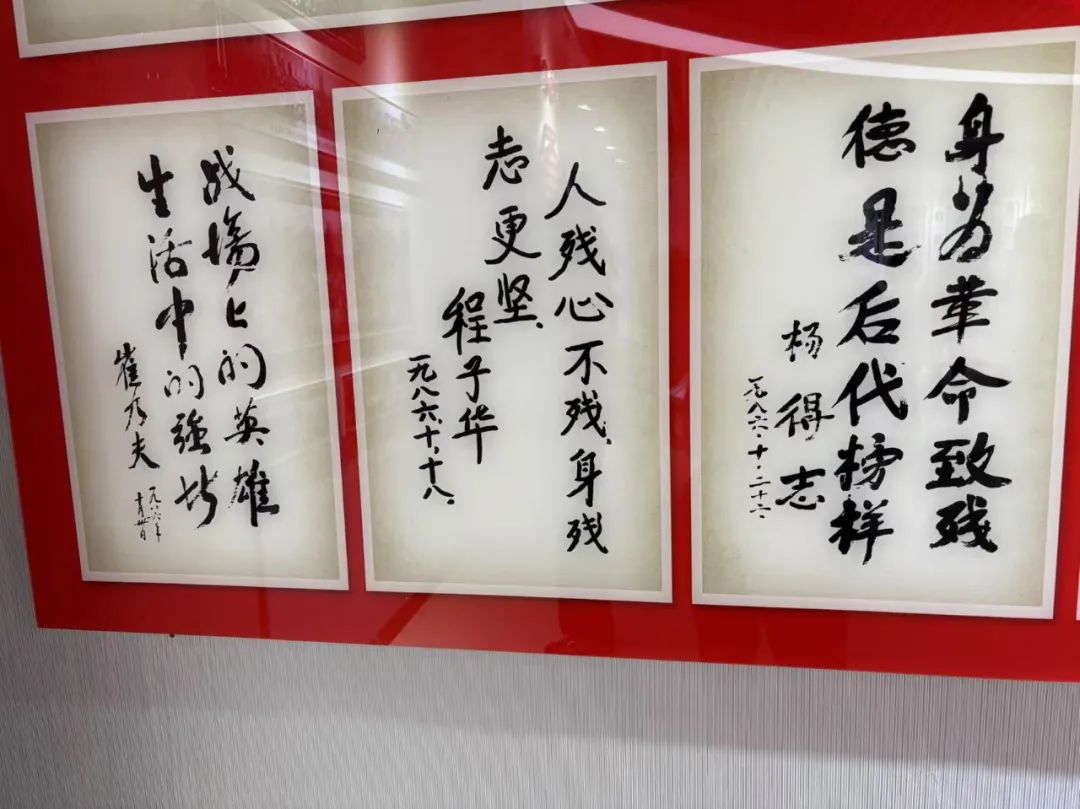 身为革命致残
德是后代榜样
杨得志
一九八六·十·二十六·
人残心不残、身残
志更坚、
程子华
一九八六、十、十八、
战場上的英雄
生活中的強者
崔乃夫
一九八六年
十月廿日